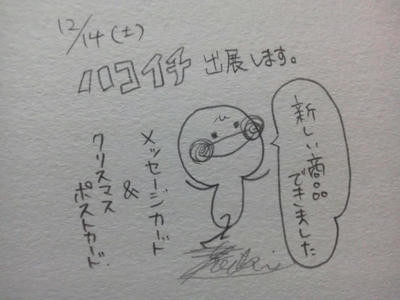 12/14(土)
ハコイチ 出展します。
新しい商品
できました
メッセージカード
&
クリスマス
ポストカード